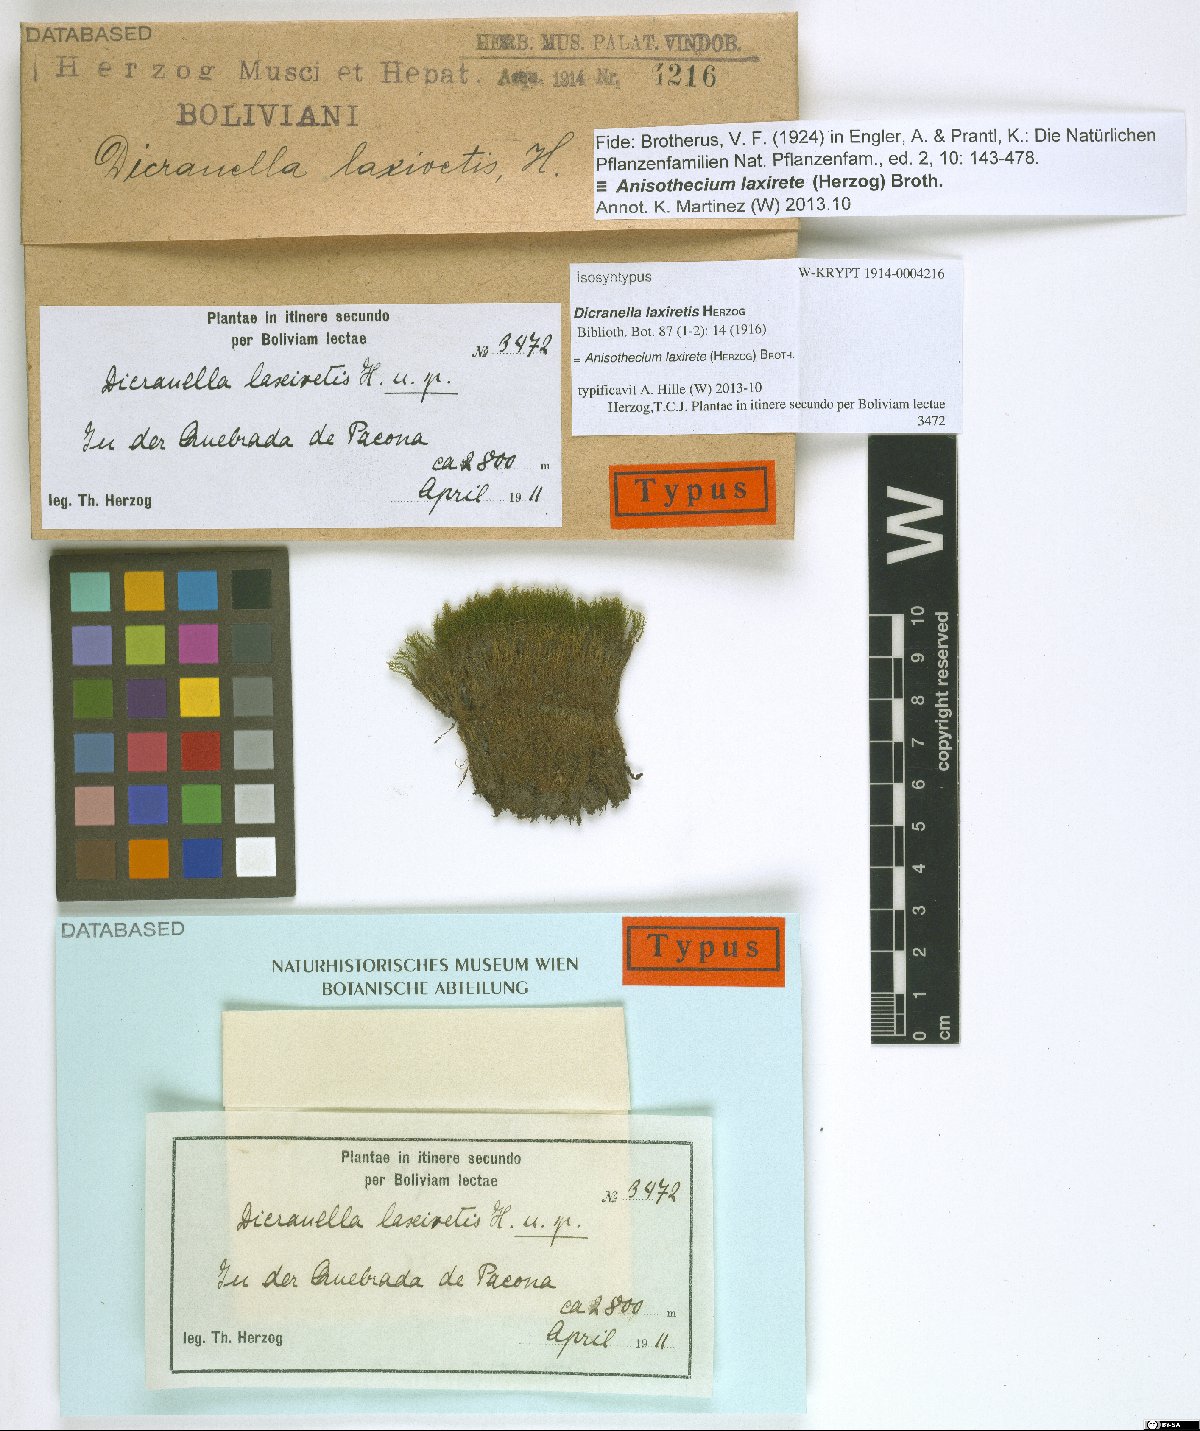 DATABASED
HERB. MUS. PALAT. VINDOB.
Herzog Musci et Hepat. Acqu. 1914 Nr. 4216
BOLIVIANI
Dicranella laxiretis, H.
Fide: Brotherus, V. F. (1924) in Engler, A. & Prantl, K.: Die Natürlichen
Pflanzenfamilien Nat. Pflanzenfam., ed. 2, 10: 143-478.
≡ Anisothecium laxirete (Herzog) Broth.
Annot. K. Martinez (W) 2013.10
Isosyntypus
W-KRYPT 1914-0004216
Dicranella laxiretis HERZOG
Biblioth. Bot. 87 (1-2): 14 (1916)
= Anisothecium laxirete (HERZOG) BROTH.
typificavit A. Hille (W) 2013-10
Herzog,T.C.J. Plantae in itinere secundo per Boliviam lectae
3472
Plantae in itinere secundo
per Boliviam lectae
№ 3472
Dicranella laxiretis H. n. sp.
In der Quebrada de Pocona
ca 2800 m
April 1911
leg. Th. Herzog
Typus
W
0 1 2 3 4 5 6 7 8 9 10
cm
copyright reserved
DATABASED
Typus
NATURHISTORISCHES MUSEUM WIEN
BOTANISCHE ABTEILUNG
Plantae in itinere secundo
per Boliviam lectae
№ 3472
Dicranella laxiretis H. n. sp.
In der Quebrada de Pocona
ca 2800 m
April 1911
leg. Th. Herzog
BY-SA